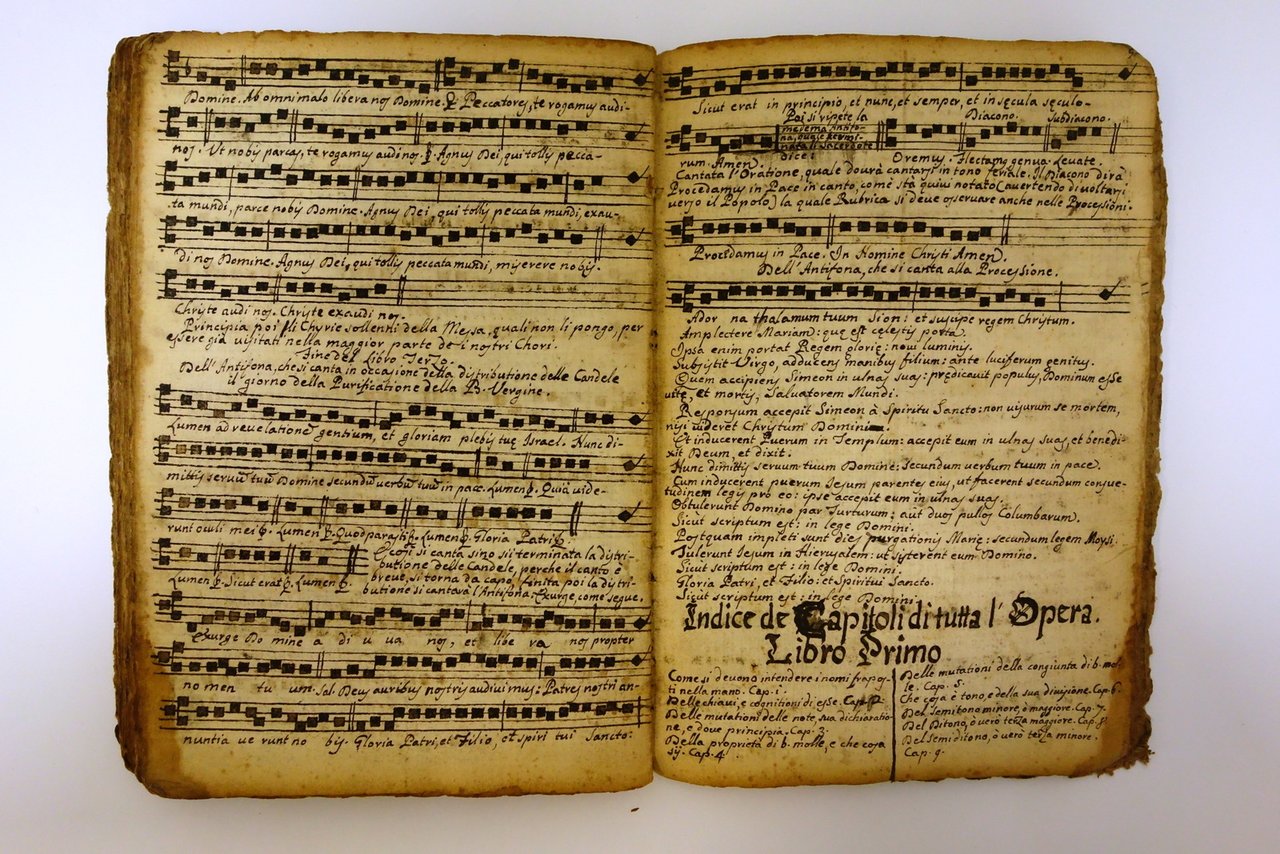 Domine. Ab omni malo libera nos Domine. ꝶ Peccatores, te rogamus audi-
nos. Ut nobis parcas, te rogamus audi nos. ꝶ. Agnus Dei, qui tollis pecca-
ta mundi, parce nobis Domine. Agnus Dei, qui tollis peccata mundi, exau-
di nos Domine. Agnus Dei, qui tollis peccata mundi, miserere nobis.
Christe audi nos. Christe exaudi nos.
Principia poi li Chyrie sollenni della Messa, quali non li pongo, per
essere già usitati nella maggior parte de i nostri Chori.
Fine del Libro Terzo.
Dell'Antifona, che si canta in occasione della distributione delle Candele
il giorno della Purificatione della B. Vergine.
Lumen ad revelatione gentium, et gloriam plebis tuę Israel. Nunc di-
mittis servuū tuū Domine secundū verbū tuū in pace. Lumen ꝶ. Quia vide-
runt oculi mei ꝶ. Lumen ꝶ. Quod parasti ꝶ. Lumen ꝶ. Gloria Patri ꝶ.
Lumen ꝶ. Sicut erat ꝶ. Lumen ꝶ.
E così si canta sino sii terminata la distri-
butione delle Candele, perche il canto è
breve, si torna da capo, finita poi la distri-
butione si cantarà l'Antifona: Exurge, come segue.
Exurge Do mine a di u va nos, et libe ra nos propter
no men tu um. Sal. Deus auribus nostris audivimus: Patres nostri an-
nuntia ve runt no bis. Gloria Patri, et Filio, et spiri tui Sancto:
Sicut erat in principio, et nunc, et semper, et in sęcula sęculo-
Poi si ripete la
medema Antifo-
na, quale termi-
nata il Sacerdote
dice:
Diacono. Subdiacono.
rum. Amen. Oremus. Flectamus genua. Levate.
Cantata l'Oratione, quale dourà cantarsi in tono feriale. Il Diacono dirà
Procedamus in Pace in canto, come stà quivi notato (avertendo di voltarsi
verso il Popolo) la quale Rubrica si deve osservare anche nelle Processioni.
Procedamus in Pace. In Nomine Christi Amen.
Dell'Antifona, che si canta alla Processione.
Ador na thalamum tuum Sion: et suscipe regem Christum.
Amplectere Mariam: quę est celestis porta.
Ipsa enim portat Regem glorię: novi luminis.
Subsistit Virgo, adducens manibus filium: ante luciferum genitus.
Quem accipiens Simeon in ulnas suas: prędicavit populis, Dominum esse
vitę, et mortis, Salvatorem Mundi.
Responsum accepit Simeon à Spiritu Sancto: non visurum se mortem,
nisi videret Christum Dominum.
Et inducerent Puerum in Templum: accepit eum in ulnas suas, et benedi-
xit Deum, et dixit.
Nunc dimittis servum tuum Domine: Secundum verbum tuum in pace.
Cum inducerent puerum Iesum parentes eius, ut facerent secundum consue-
tudinem legis pro eo: ipse accepit eum in ulnas suas.
Obtulerunt Domino par Turturum: aut duos pullos Columbarum.
Sicut scriptum est: in lege Domini.
Postquam impleti sunt dies purgationis Marię: secundum legem Moysi.
Tulerunt Iesum in Hierusalem: ut sisterent eum Domino.
Sicut scriptum est: in lege Domini.
Gloria Patri, et Filio: et Spiritui Sancto.
Sicut scriptum est: in lege Domini.
Indice de Capitoli di tutta l'Opera.
Libro Primo
Come si devono intendere i nomi frapos-
ti nella mano. Cap. 1.
Delle chiavi, e cognitioni di esse. Cap. 2.
Delle mutationi delle note, sua dichiaratio-
ne, e dove principia. Cap. 3.
Della proprietà di b. molle, e che cosa
sij. Cap. 4.
Delle mutationi della congiunta di b. mol-
le. Cap. 5.
Che cosa è tono, e della sua divisione. Cap. 6.
Del Semitono minore, ò maggiore. Cap. 7.
Del Ditono, ò verò terza maggiore. Cap. 8.
Del Semiditono, ò verò terza minore.
Cap. 9.